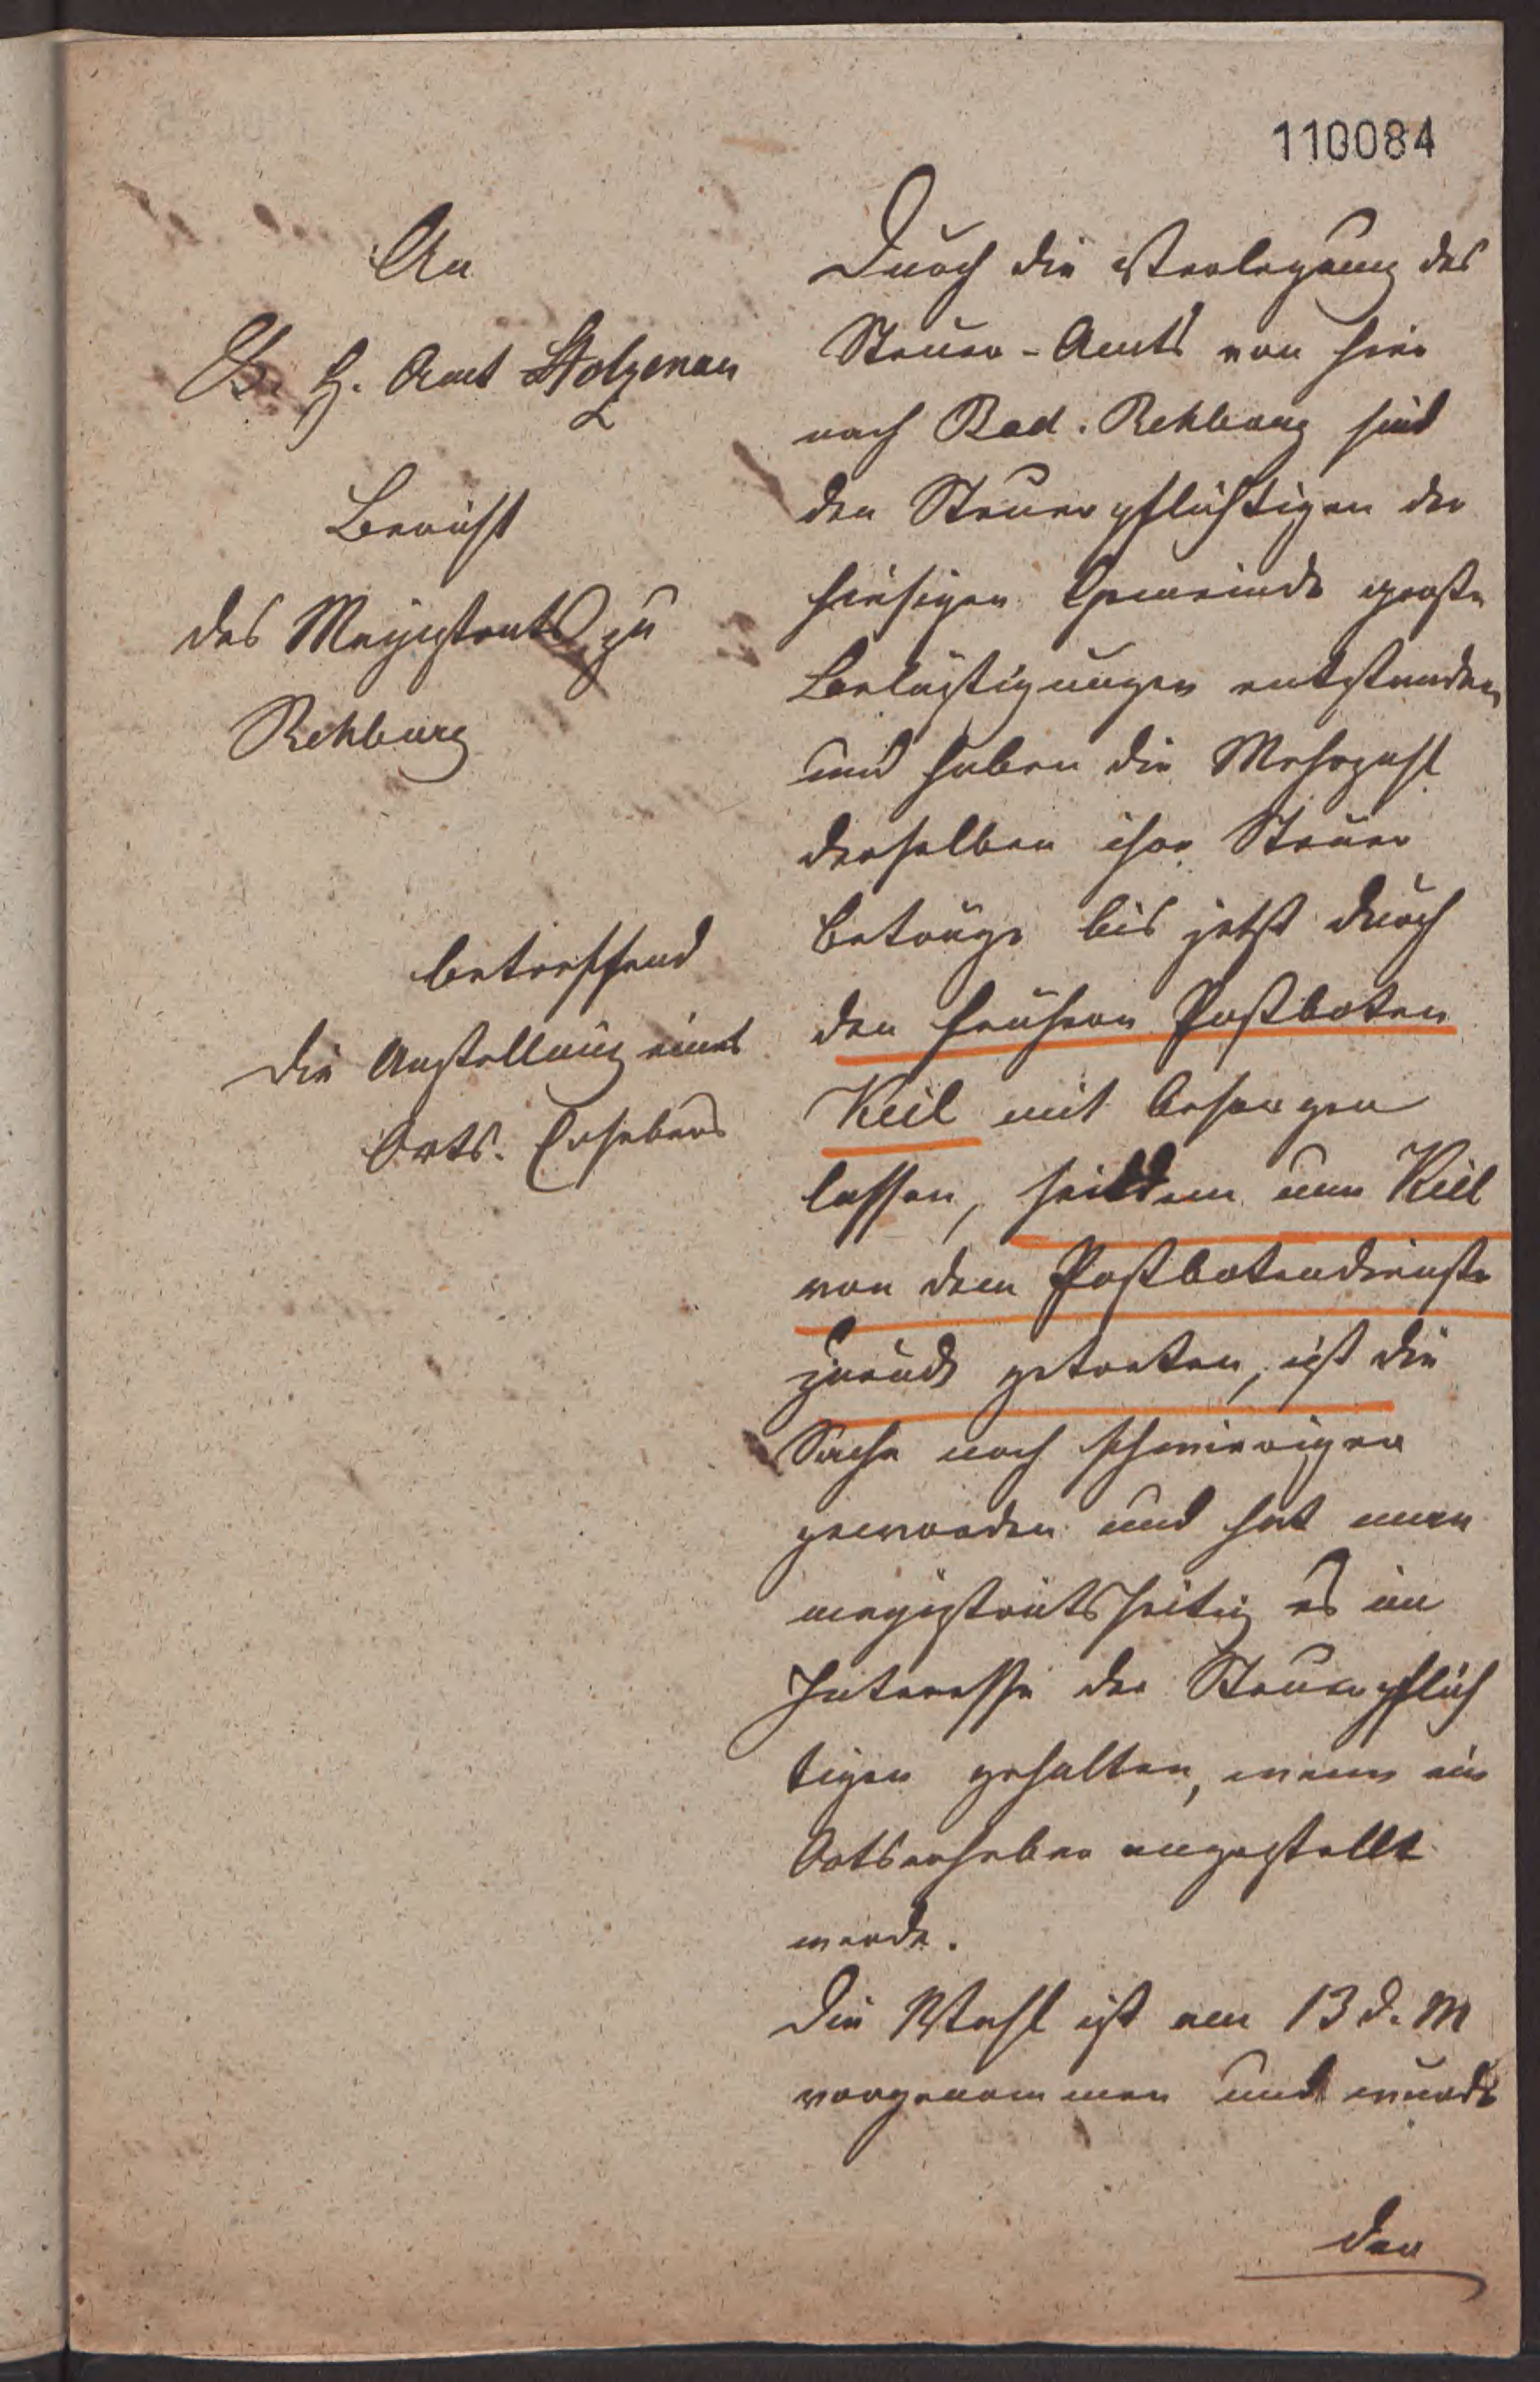 110084
An
K. H. Amt Stolzenau
Bericht
des Magistrats zu
Rehburg
betreffend
die Anstellung eines
Orts. Erhebers
Durch die Verlegung des
Steuer-Amts von hier
nach Bad. Rehburg sind
den Steuerpflichtigen der
hiesigen Gemeinde große
Belästigungen entstanden
und haben die Mehrzahl
derselben ihre Steuer
beträge bis jetzt durch
den frühern Postboten
Keil mit besorgen
lassen, seitdem nun Keil
von dem Postbotendienste
zurück getreten, ist die
Sache noch schwieriger
geworden und hat man
magistratsseitig es im
Interesse der Steuerpflich
tigen gehalten, wenn ein
Ortserheber angestellt
werde.
Die Wahl ist am 13 d. M
vorgenommen und wurde
der